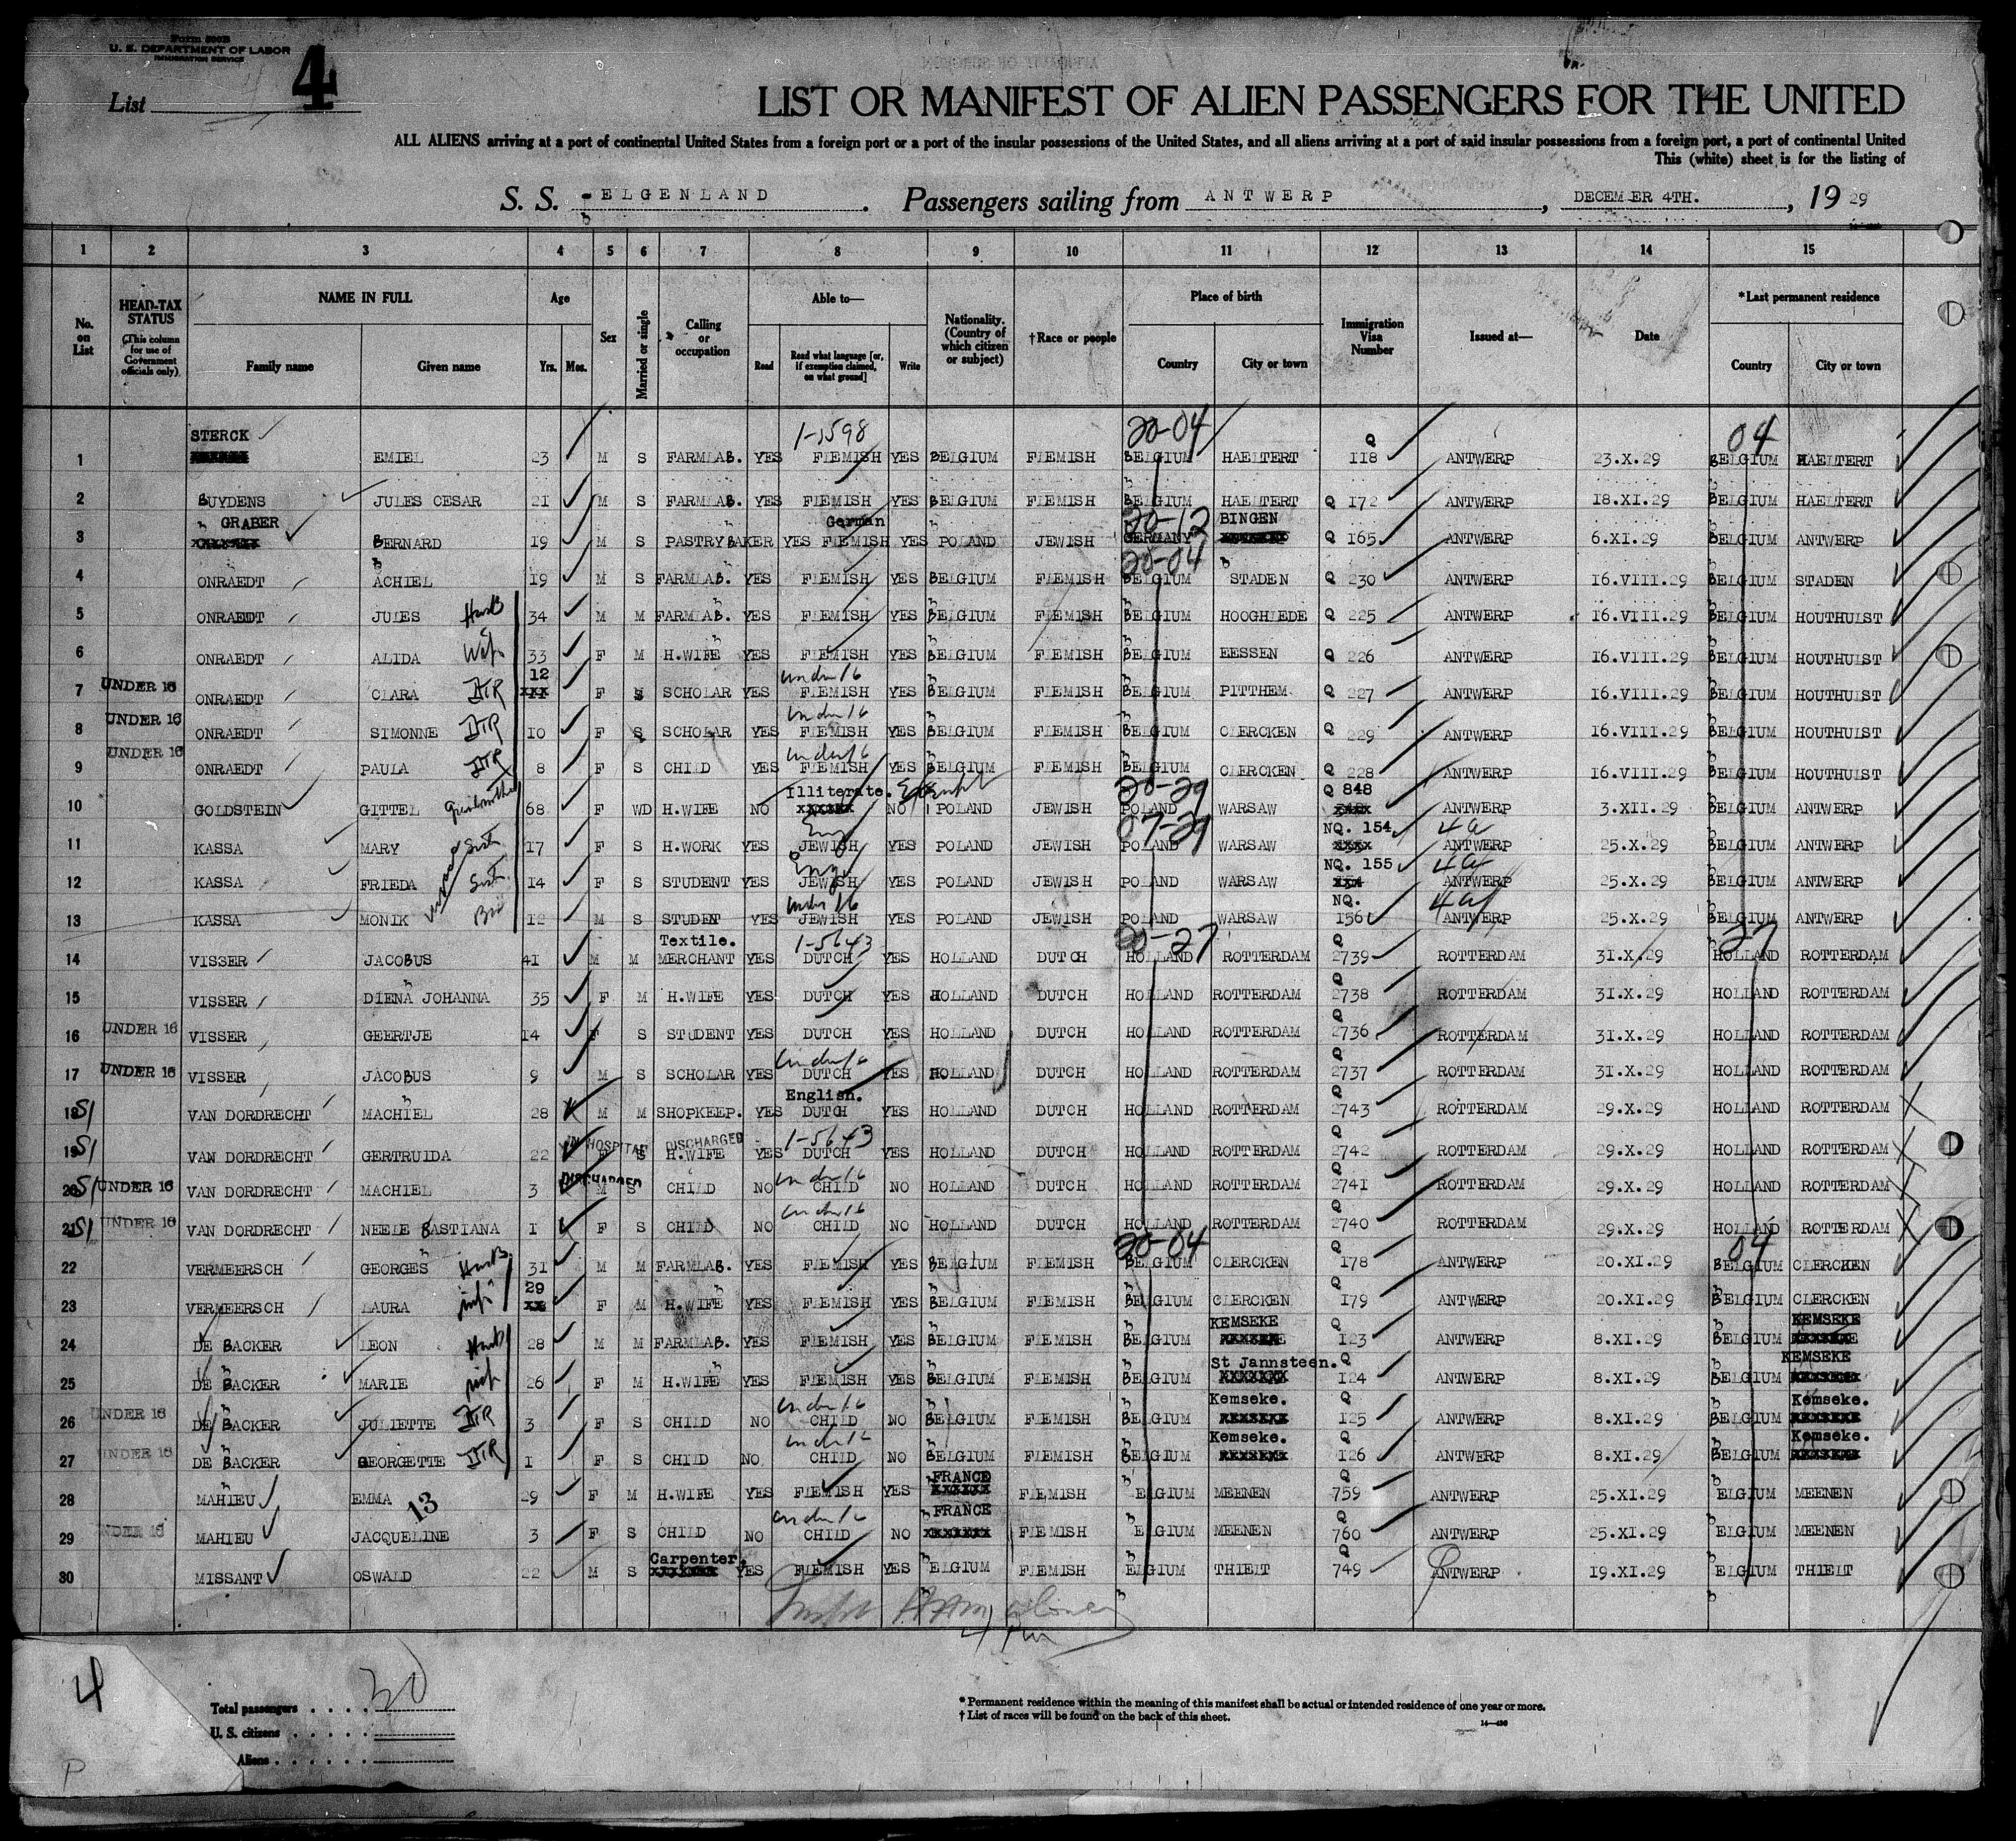 Form 500B
U. S. DEPARTMENT OF LABOR
IMMIGRATION SERVICE
List 4
LIST OR MANIFEST OF ALIEN PASSENGERS FOR THE UNITED
ALL ALIENS arriving at a port of continental United States from a foreign port or a port of the insular possessions of the United States, and all aliens arriving at a port of said insular possessions from a foreign port, a port of continental United
This (white) sheet is for the listing of
S. S. BELGENLAND. Passengers sailing from ANTWERP, DECEMBER 4TH., 1929
1 2 3 4 5 6 7 8 9 10 11 12 13 14 15
No. on List
HEAD-TAX STATUS (This column for use of Government officials only)
NAME IN FULL
Family name Given name
Age
Yrs. Mos.
Sex
Married or single
Calling or occupation
Able to—
Read Read what language [or, if exemption claimed, on what ground] Write
Nationality. (Country of which citizen or subject)
†Race or people
Place of birth
Country City or town
Immigration Visa Number
Issued at—
Date
*Last permanent residence
Country City or town
1-3598 20-04 04
1 STERCK EMIEL 23 M S FARMLAB. YES FLEMISH YES BELGIUM FLEMISH BELGIUM HAELTERT Q 118 ANTWERP 23.X.29 BELGIUM HAELTERT
2 BUYDENS JULES CESAR 21 M S FARMLAB. YES FLEMISH YES BELGIUM FLEMISH BELGIUM HAELTERT Q 172 ANTWERP 18.XI.29 BELGIUM HAELTERT
GRABER German 20-12 BINGEN
3 BERNARD 19 M S PASTRYBAKER YES FLEMISH YES POLAND JEWISH GERMANY Q 165 ANTWERP 6.XI.29 BELGIUM ANTWERP
20-04
4 ONRAEDT ACHIEL 19 M S FARMLAB. YES FLEMISH YES BELGIUM FLEMISH BELGIUM STADEN Q 230 ANTWERP 16.VIII.29 BELGIUM STADEN
5 ONRAEDT JULES Husb 34 M M FARMLAB. YES FLEMISH YES BELGIUM FLEMISH BELGIUM HOOGHLEDE Q 225 ANTWERP 16.VIII.29 BELGIUM HOUTHULST
6 ONRAEDT ALIDA Wife 33 F M H.WIFE YES FLEMISH YES BELGIUM FLEMISH BELGIUM EESSEN Q 226 ANTWERP 16.VIII.29 BELGIUM HOUTHULST
12 under 16
7 UNDER 16 ONRAEDT CLARA DTR F S SCHOLAR YES FLEMISH YES BELGIUM FLEMISH BELGIUM PITTHEM Q 227 ANTWERP 16.VIII.29 BELGIUM HOUTHULST
under 16
8 UNDER 16 ONRAEDT SIMONNE DTR 10 F S SCHOLAR YES FLEMISH YES BELGIUM FLEMISH BELGIUM CLERCKEN Q 229 ANTWERP 16.VIII.29 BELGIUM HOUTHULST
under 16
9 UNDER 16 ONRAEDT PAULA DTR 8 F S CHILD YES FLEMISH YES BELGIUM FLEMISH BELGIUM CLERCKEN Q 228 ANTWERP 16.VIII.29 BELGIUM HOUTHULST
Illiterate. Exempt 20-29 Q 848
10 GOLDSTEIN GITTEL Grandmother 68 F WD H.WIFE NO NO POLAND JEWISH POLAND WARSAW ANTWERP 3.XII.29 BELGIUM ANTWERP
Eng 07-29 NQ. 154 4a
11 KASSA MARY Sist 17 F S H.WORK YES JEWISH YES POLAND JEWISH POLAND WARSAW ANTWERP 25.X.29 BELGIUM ANTWERP
Eng NQ. 155 4a
12 KASSA FRIEDA Sist 14 F S STUDENT YES JEWISH YES POLAND JEWISH POLAND WARSAW ANTWERP 25.X.29 BELGIUM ANTWERP
under 16 NQ. 4a
13 KASSA MONIK Bro 12 M S STUDEN YES JEWISH YES POLAND JEWISH POLAND WARSAW 156 ANTWERP 25.X.29 BELGIUM ANTWERP
Textile. 1-5643 20-27 Q 27
14 VISSER JACOBUS 41 M M MERCHANT YES DUTCH YES HOLLAND DUTCH HOLLAND ROTTERDAM 2739 ROTTERDAM 31.X.29 HOLLAND ROTTERDAM
15 VISSER DIENA JOHANNA 35 F M H.WIFE YES DUTCH YES HOLLAND DUTCH HOLLAND ROTTERDAM Q 2738 ROTTERDAM 31.X.29 HOLLAND ROTTERDAM
16 UNDER 16 VISSER GEERTJE 14 F S STUDENT YES DUTCH YES HOLLAND DUTCH HOLLAND ROTTERDAM Q 2736 ROTTERDAM 31.X.29 HOLLAND ROTTERDAM
under 16
17 UNDER 16 VISSER JACOBUS 9 M S SCHOLAR YES DUTCH YES HOLLAND DUTCH HOLLAND ROTTERDAM Q 2737 ROTTERDAM 31.X.29 HOLLAND ROTTERDAM
English.
18 SI VAN DORDRECHT MACHIEL 28 M M SHOPKEEP. YES DUTCH YES HOLLAND DUTCH HOLLAND ROTTERDAM Q 2743 ROTTERDAM 29.X.29 HOLLAND ROTTERDAM
IN HOSPITAL DISCHARGED 1-5643
19 SI VAN DORDRECHT GERTRUIDA 22 F S H.WIFE YES DUTCH YES HOLLAND DUTCH HOLLAND ROTTERDAM Q 2742 ROTTERDAM 29.X.29 HOLLAND ROTTERDAM
DISCHARGED under 16
20 SI UNDER 16 VAN DORDRECHT MACHIEL 3 M S CHILD NO CHILD NO HOLLAND DUTCH HOLLAND ROTTERDAM Q 2741 ROTTERDAM 29.X.29 HOLLAND ROTTERDAM
under 16
21 SI UNDER 16 VAN DORDRECHT NEELE BASTIANA 1 F S CHILD NO CHILD NO HOLLAND DUTCH HOLLAND ROTTERDAM Q 2740 ROTTERDAM 29.X.29 HOLLAND ROTTERDAM
20-04 04
22 VERMEERSCH GEORGES Husb 31 M M FARMLAB. YES FLEMISH YES BELGIUM FLEMISH BELGIUM CLERCKEN Q 178 ANTWERP 20.XI.29 BELGIUM CLERCKEN
29
23 VERMEERSCH LAURA wife F M H.WIFE YES FLEMISH YES BELGIUM FLEMISH BELGIUM CLERCKEN Q 179 ANTWERP 20.XI.29 BELGIUM CLERCKEN
KEMSEKE KEMSEKE
24 DE BACKER LEON Husb 28 M M FARMLAB. YES FLEMISH YES BELGIUM FLEMISH BELGIUM Q 123 ANTWERP 8.XI.29 BELGIUM
St Jannsteen. KEMSEKE
25 DE BACKER MARIE wife 26 F M H.WIFE YES FLEMISH YES BELGIUM FLEMISH BELGIUM Q 124 ANTWERP 8.XI.29 BELGIUM
under 16 Kemseke. Kemseke.
26 UNDER 16 DE BACKER JULIETTE DTR 3 F S CHILD NO CHILD NO BELGIUM FLEMISH BELGIUM Q 125 ANTWERP 8.XI.29 BELGIUM
under 16 Kemseke. Kemseke.
27 UNDER 16 DE BACKER GEORGETTE DTR 1 F S CHILD NO CHILD NO BELGIUM FLEMISH BELGIUM Q 126 ANTWERP 8.XI.29 BELGIUM
FRANCE
28 MAHIEU EMMA 29 F M H.WIFE YES FLEMISH YES FLEMISH BELGIUM MEENEN Q 759 ANTWERP 25.XI.29 BELGIUM MEENEN
13 under 16 FRANCE
29 UNDER 16 MAHIEU JACQUELINE 3 F S CHILD NO CHILD NO FLEMISH BELGIUM MEENEN Q 760 ANTWERP 25.XI.29 BELGIUM MEENEN
Carpenter.
30 MISSANT OSWALD 22 M S YES FLEMISH YES BELGIUM FLEMISH BELGIUM THIELT Q 749 ANTWERP 19.XI.29 BELGIUM THIELT
4
Total passengers . . . . 30
U. S. citizens . . . . .
Aliens . . . . . .
P
* Permanent residence within the meaning of this manifest shall be actual or intended residence of one year or more.
† List of races will be found on the back of this sheet.
14—430